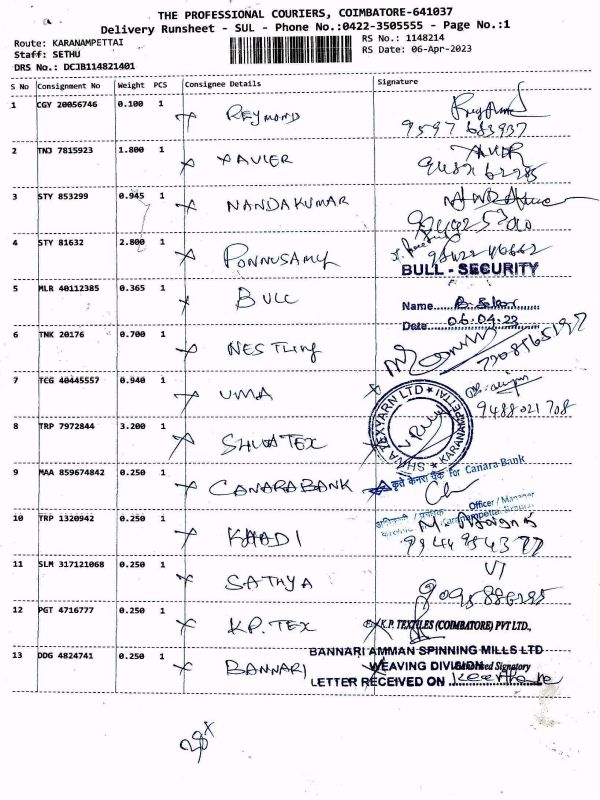 THE PROFESSIONAL COURIERS, COIMBATORE-641037
Delivery Runsheet - SUL - Phone No.:0422-3505555 - Page No.:1
Route: KARANAMPETTAI
RS No.: 1148214
Staff: SETHU
RS Date: 06-Apr-2023
DRS No.: DCJB114821401
S No Consignment No Weight PCS Consignee Details Signature
1 CGY 20056746 0.100 1 REYMOND
9597 683937
2 TNJ 7815923 1.800 1 XAVIER
3 STY 853299 0.945 1 NANDAKUMAR
4 STY 81632 2.800 1 PONNUSAMY
BULL - SECURITY
5 MLR 40112385 0.365 1 BULL
Name
Date 06.04.23
6 TNK 20176 0.700 1 NESTLING
7 TCG 40445557 0.940 1 UMA
9488021708
8 TRP 7972844 3.200 1 SHUVATEX
TEXYARN LTD
KARANAMPETTAI
9 MAA 859674842 0.250 1 CANARABANK
कृते केनरा बैंक for Canara Bank
Officer / Manager
10 TRP 1320942 0.250 1 KHADI
11 SLM 317121068 0.250 1 SATHYA
12 PGT 4716777 0.250 1 K.P. TEX
K.P. TEXTILES (COIMBATORE) PVT LTD.,
BANNARI AMMAN SPINNING MILLS LTD
13 DDG 4824741 0.250 1 BANNARI
WEAVING DIVISION
Signatory
LETTER RECEIVED ON